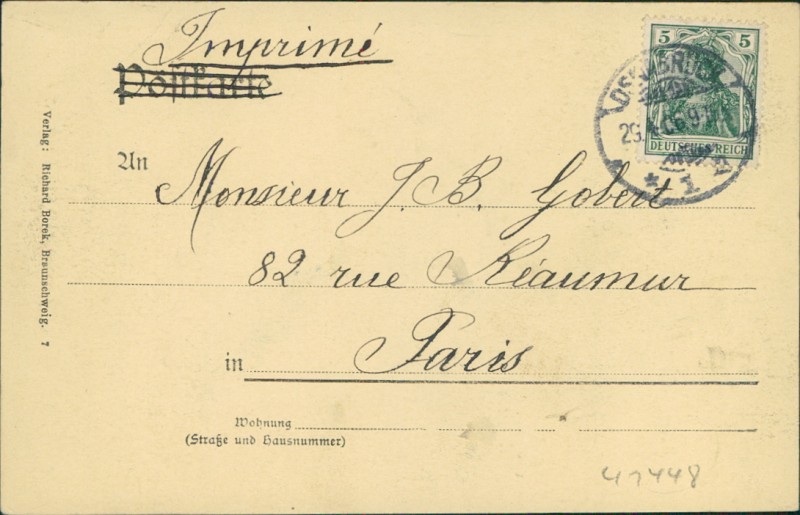 Imprimé
Postkarte
5 5
DEUTSCHES REICH
OSNABRÜCK
* 1
An Monsieur J. B. Gobert
82 rue Réaumur
in Paris
Wohnung
(Straße und Hausnummer)
Verlag: Richard Borek, Braunschweig. 7
41448